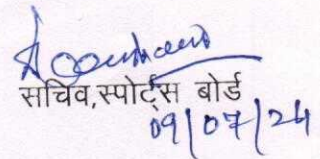 सचिव,स्पोर्ट्स बोर्ड
09/07/24